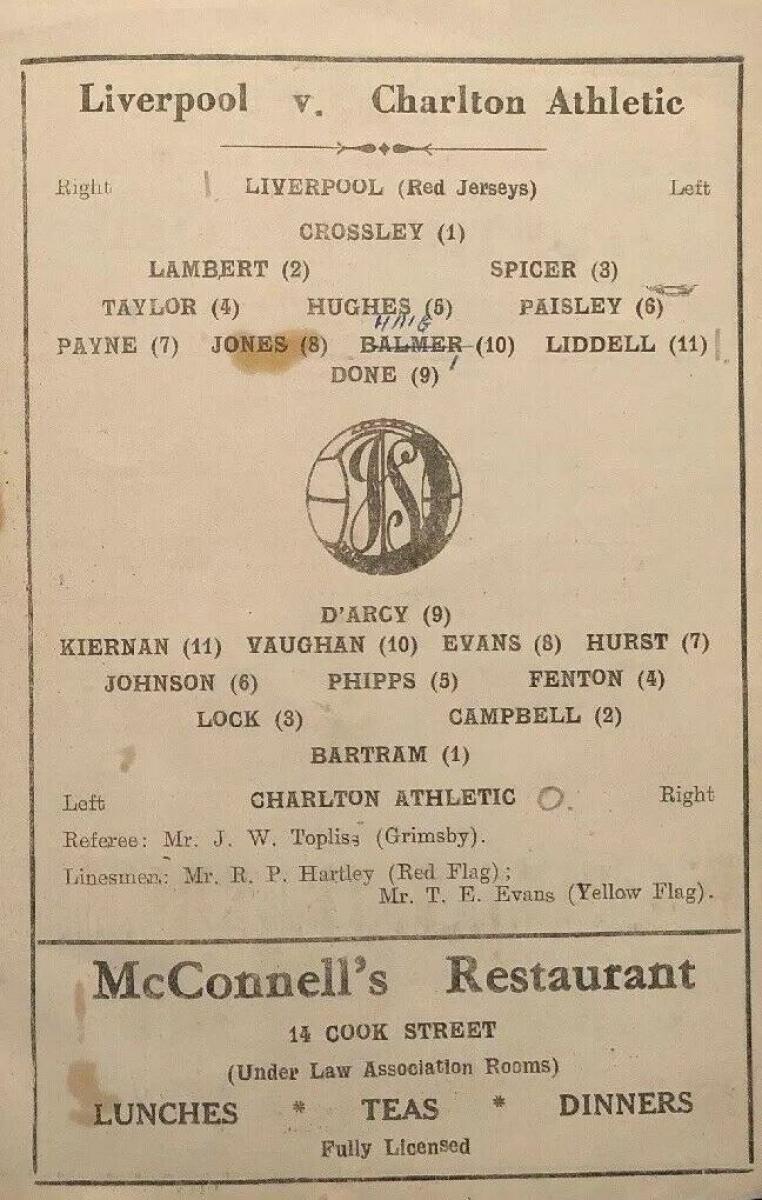 Liverpool v. Charlton Athletic
Right | LIVERPOOL (Red Jerseys) Left
CROSSLEY (1)
LAMBERT (2) SPICER (3)
TAYLOR (4) HUGHES (5) PAISLEY (6)
HAIG
PAYNE (7) JONES (8) BALMER (10) LIDDELL (11) |
DONE (9)
D'ARCY (9)
KIERNAN (11) VAUGHAN (10) EVANS (8) HURST (7)
JOHNSON (6) PHIPPS (5) FENTON (4)
LOCK (3) CAMPBELL (2)
BARTRAM (1)
Left CHARLTON ATHLETIC O. Right
Referee: Mr. J. W. Topliss (Grimsby).
Linesmen: Mr. R. P. Hartley (Red Flag);
Mr. T. E. Evans (Yellow Flag).
McConnell's Restaurant
14 COOK STREET
(Under Law Association Rooms)
LUNCHES * TEAS * DINNERS
Fully Licensed